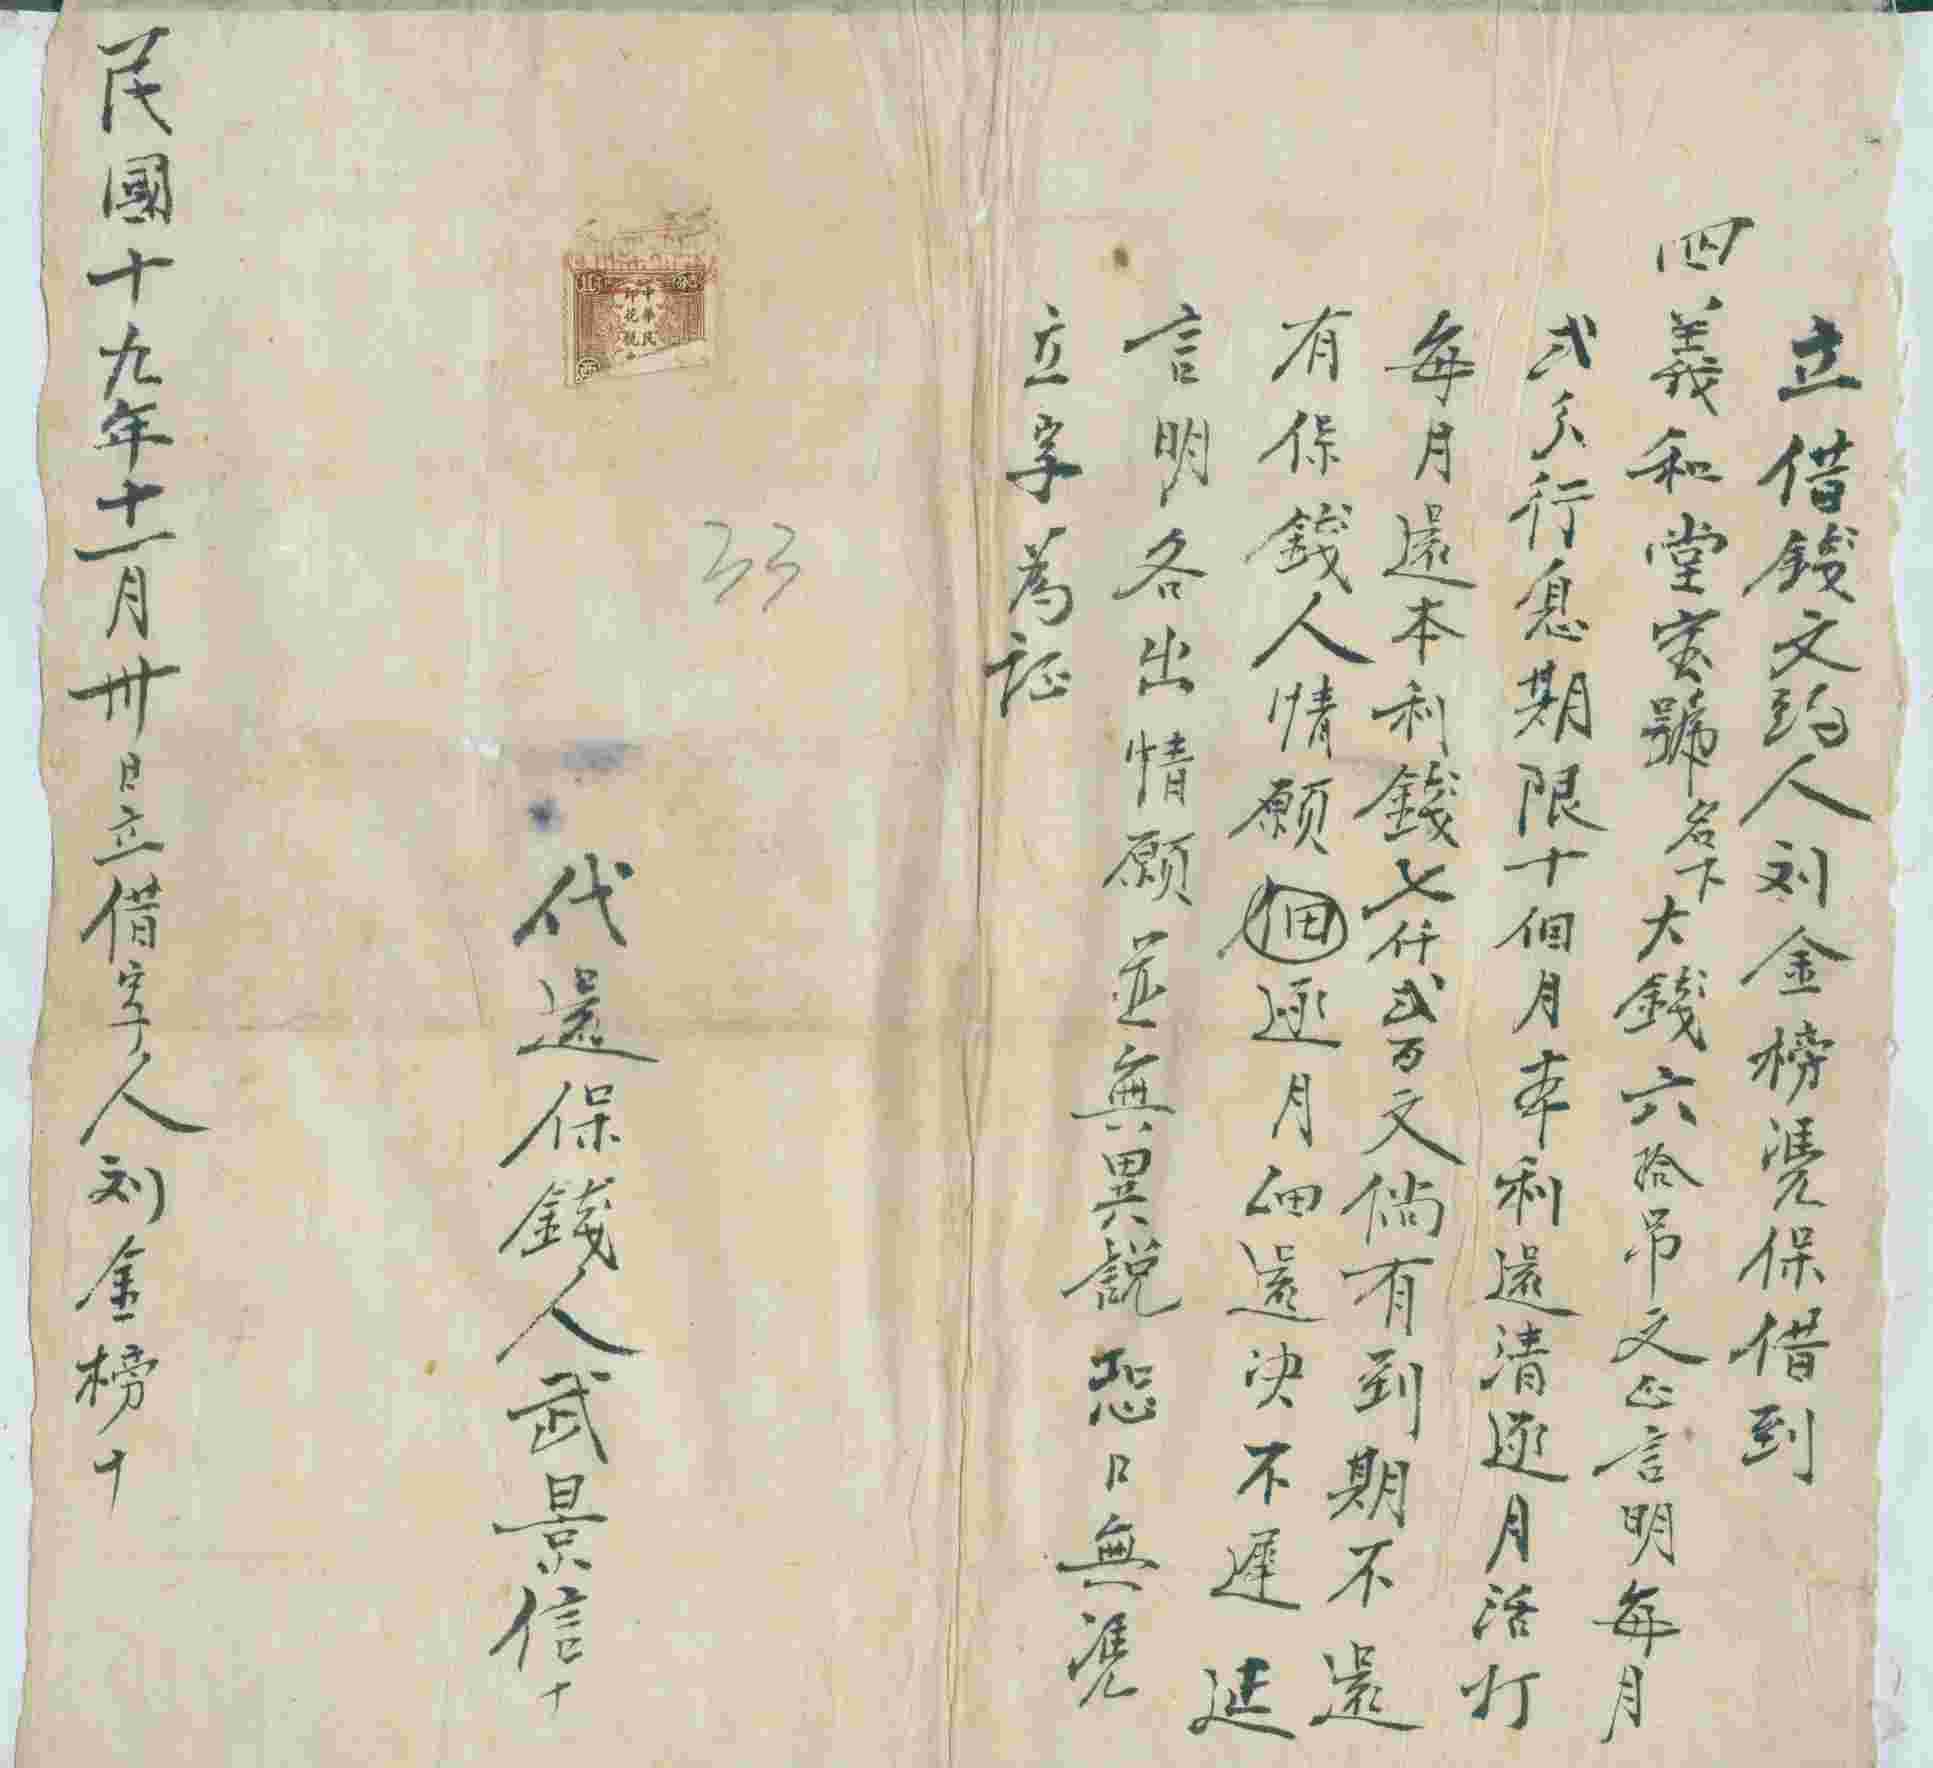 立借錢文約人刘金榜憑保借到
四義和堂宝號名下大錢六拾吊文正言明每月
弍分行息期限十個月本利還清逐月活灯
每月還本利錢七仟弍百文倘有到期不還
有保錢人情願個逐月细還决不遲延
言明各出情願並無異說恐口無憑
立字為証
中華民
印花稅
33
代還保錢人武景信十
民國十九年十一月卅日立借字人刘金榜十